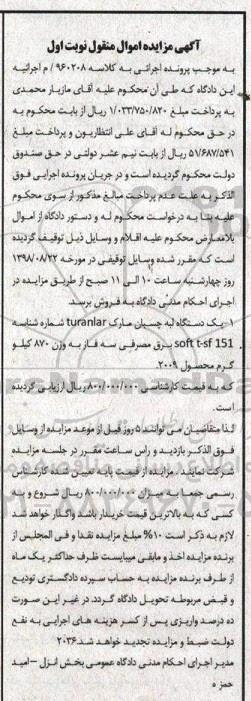 آگهی مزایده اموال منقول نوبت اول
به موجب پرونده اجرائی به کلاسه ۹۶۰۲۰۸ / م اجرائیه
این دادگاه که طی آن محکوم علیه آقای مازیار محمدی
به پرداخت مبلغ ۱/۰۳۳/۷۵۰/۸۲۰ ریال از بابت محکوم به
در حق محکوم له آقای علی انتظاریون و پرداخت مبلغ
۵۱/۶۸۷/۵۴۱ ریال از بابت نیم عشر دولتی در حق صندوق
دولت محکوم گردیده است و در جریان پرونده اجرایی فوق
الذکر به علت عدم پرداخت مبالغ مذکور از سوی محکوم
علیه بنا به درخواست محکوم له و دستور دادگاه از اموال
بلامعارض محکوم علیه اقلام و وسایل ذیل توقیف گردیده
است که مقرر شده وسایل توقیفی در مورخه ۱۳۹۸/۰۸/۲۲
روز چهارشنبه ساعت ۱۰ الی ۱۱ صبح از طریق مزایده در
اجرای احکام مدنی دادگاه به فروش برسد.
۱-یک دستگاه لبه چسبان مارک turanlar شماره شناسه
soft t-sf 151 برق مصرفی سه فاز به وزن ۸۷۰ کیلو
گرم محصول ۲۰۰۹
که به قیمت کارشناسی ۸۰۰/۰۰۰/۰۰۰ ریال ارزیابی گردیده
است.
لذا متقاضیان می توانند ۵ روز قبل از موعد مزایده از وسایل
فوق الذکر بازدید و راس ساعت مقرر در جلسه مزایده
شرکت نمایند. مزایده از قیمت پایه تعیین شده کارشناس
رسمی جمعا به میزان ۸۰۰/۰۰۰/۰۰۰ ریال شروع و به
کسی که به بالاترین قیمت خریدار باشد واگذار خواهد شد
لازم به ذکر است ۱۰% مبلغ مزایده نقدا و فی المجلس از
برنده مزایده اخذ و مابقی میبایست ظرف حداکثر یک ماه
از طرف برنده مزایده به حساب سپرده دادگستری تودیع
و قبض مربوطه تحویل دادگاه گردد. در غیر این صورت
ده درصد واریزی پس از کسر هزینه های اجرایی به نفع
دولت ضبط و مزایده تجدید خواهد شد.۲۰۳۶
مدیر اجرای احکام مدنی دادگاه عمومی بخش انزل -امید
حمز ه